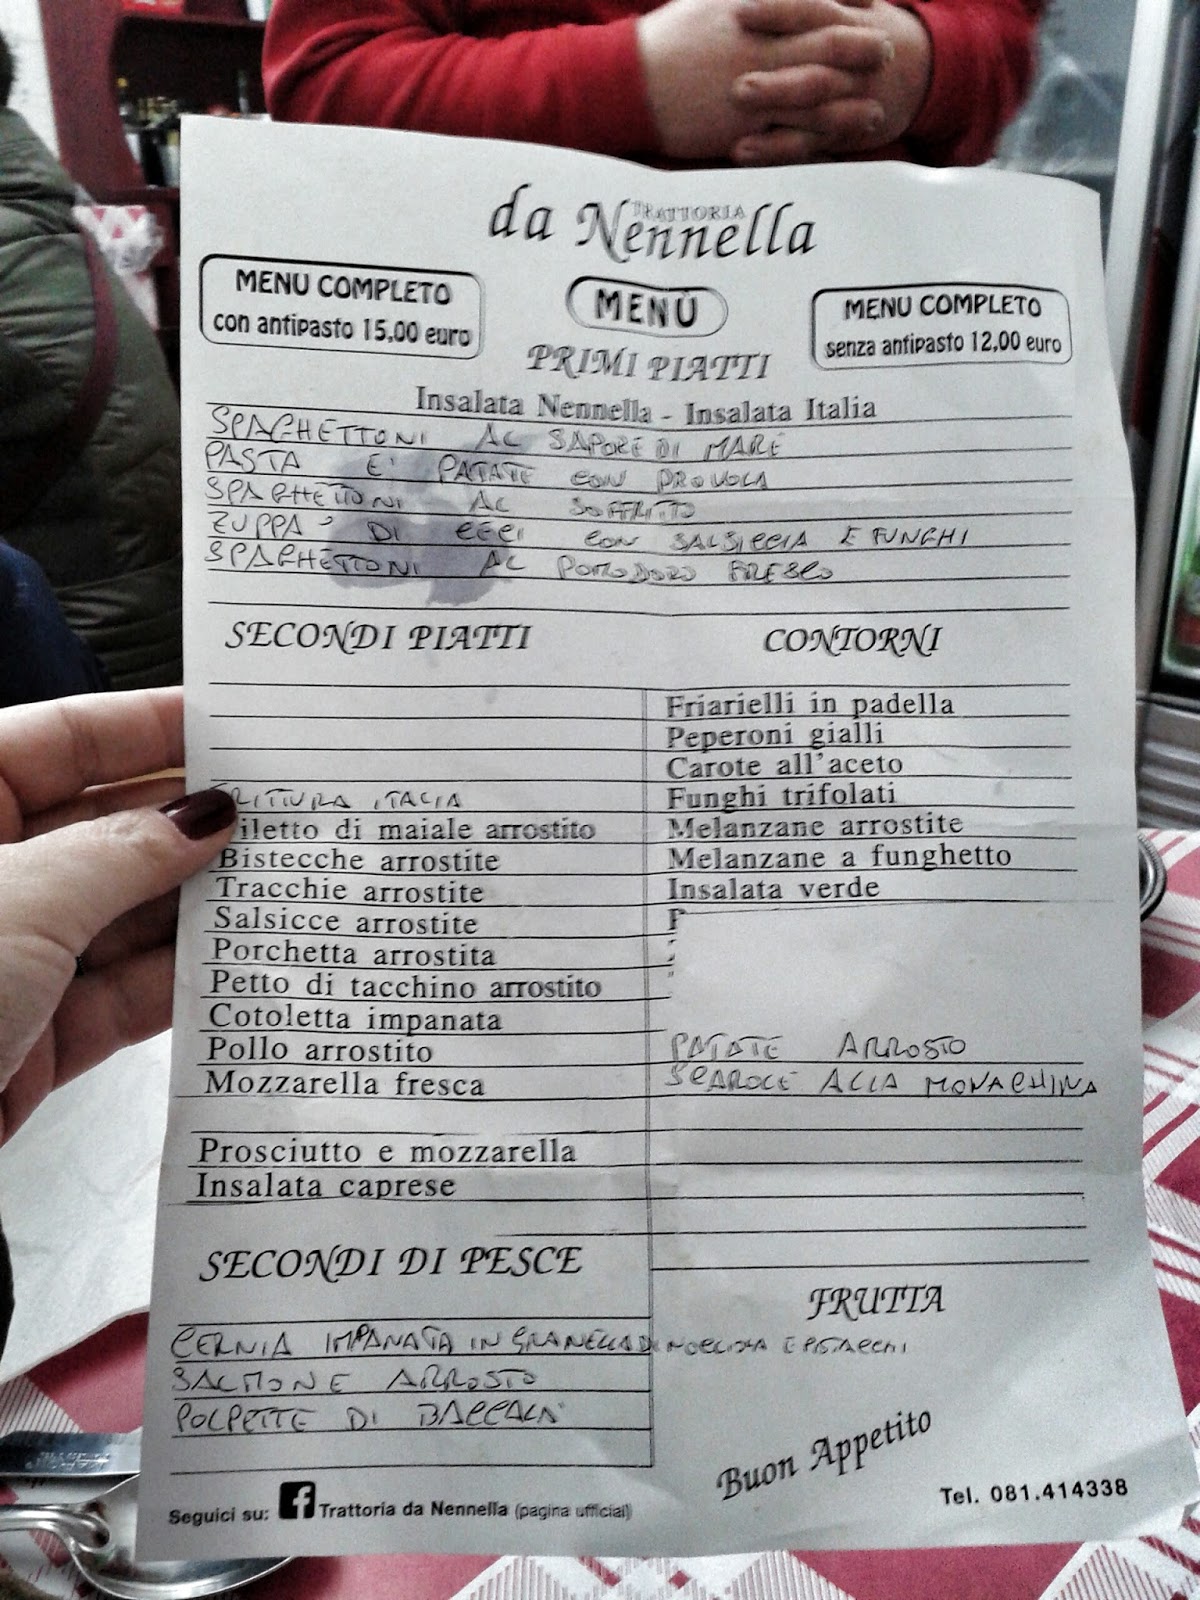 da Nennella
TRATTORIA
MENU COMPLETO
con antipasto 15,00 euro
MENÙ
MENU COMPLETO
senza antipasto 12,00 euro
PRIMI PIATTI
Insalata Nennella - Insalata Italia
SPAGHETTONI AL SAPORE DI MARE
PASTA E' PATATE CON PROVOLA
SPAGHETTONI AL SOFFRITTO
ZUPPA' DI CECI CON SALSICCIA E FUNGHI
SPAGHETTONI AL POMODORO FRESCO
SECONDI PIATTI
FRITTURA ITALIA
iletto di maiale arrostito
Bistecche arrostite
Tracchie arrostite
Salsicce arrostite
Porchetta arrostita
Petto di tacchino arrostito
Cotoletta impanata
Pollo arrostito
Mozzarella fresca
Prosciutto e mozzarella
Insalata caprese
CONTORNI
Friarielli in padella
Peperoni gialli
Carote all'aceto
Funghi trifolati
Melanzane arrostite
Melanzane a funghetto
Insalata verde
PATATE ARROSTO
SCAROLE ALLA MONACHINA
SECONDI DI PESCE
CERNIA IMPANATA IN GRANELLA DI NOCCIOLA E PISTACCHI
SALMONE ARROSTO
POLPETTE DI BACCALA'
FRUTTA
Buon Appetito
Seguici su: f Trattoria da Nennella (pagina ufficial)
Tel. 081.414338